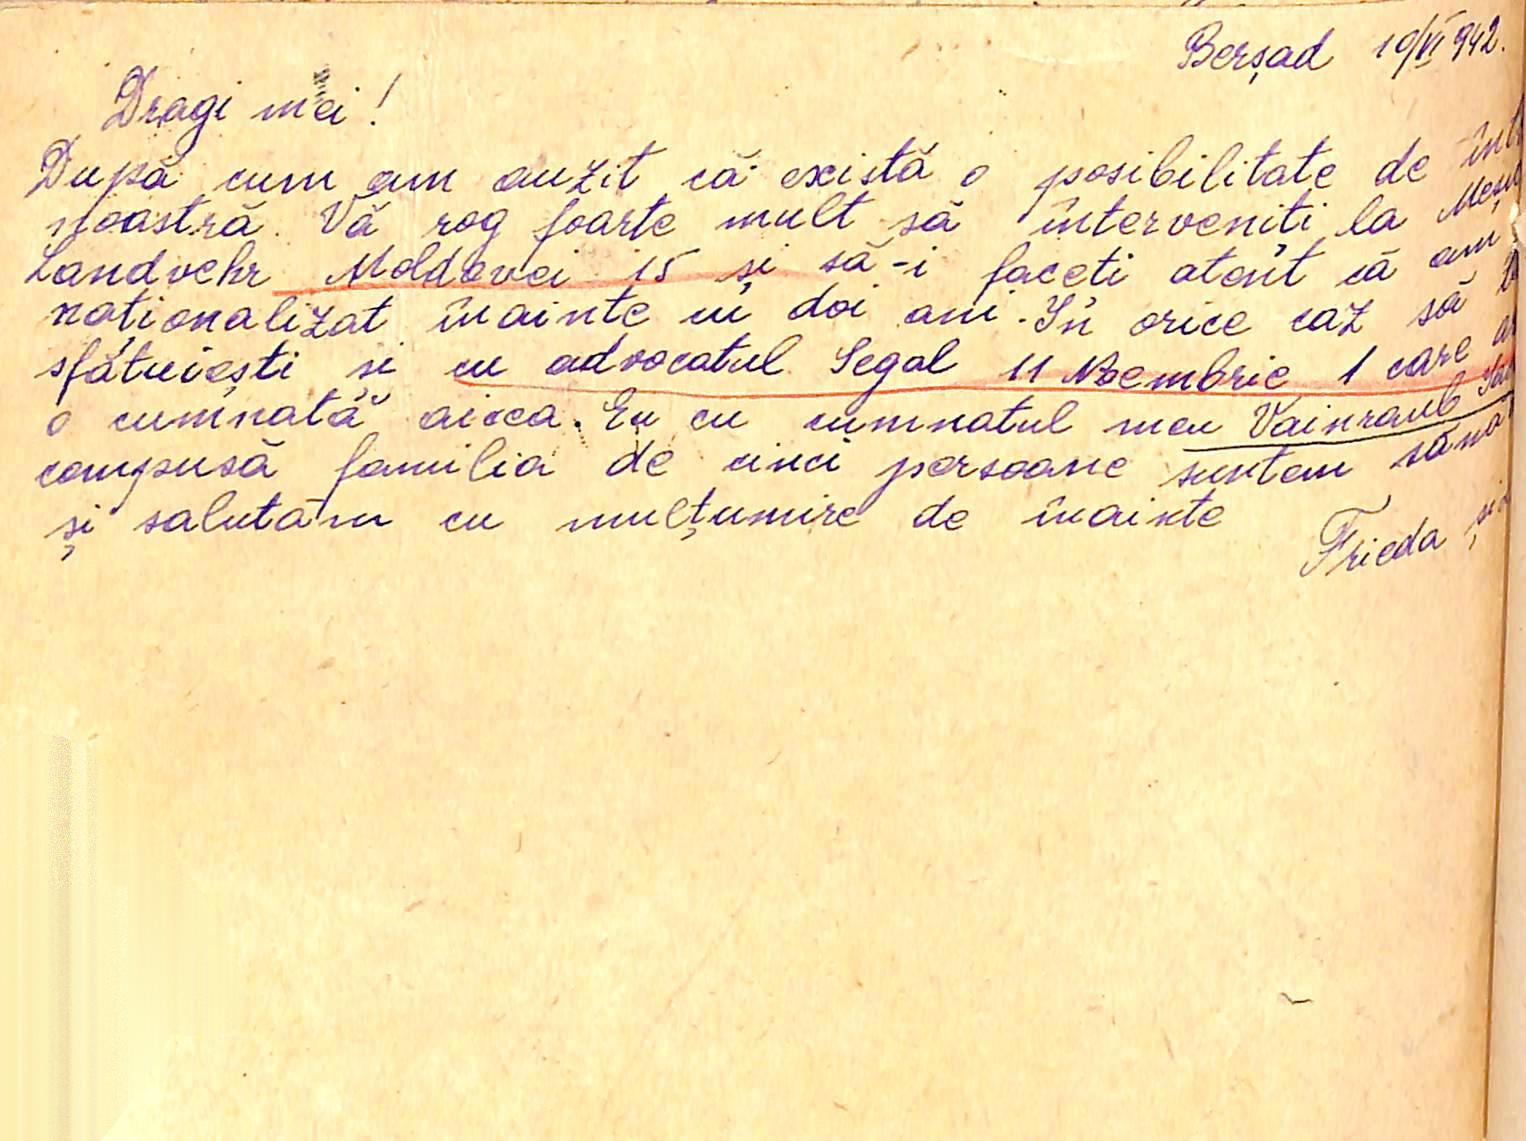 Berșad 10/VI 942.
Dragi mei!
După cum am auzit că există o posibilitate de
noastră. Vă rog foarte mult să interveniti la
Landvehr Moldovei 15 și să-i faceti atent că am
naționalizat înainte cu doi ani. În orice caz să
sfătuiești si cu advocatul Segal 11 Noembrie 1 care
o cumnată aicea. Eu cu cumnatul meu Vainraub
compusă familia de cinci persoane suntem
și salutăm cu mulțumire de înainte
Frieda și